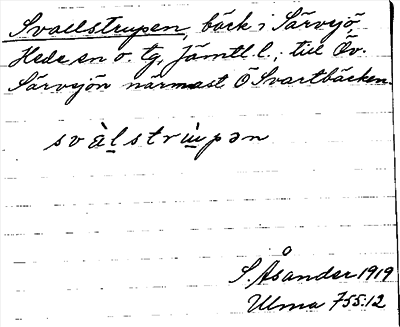 Svaelstrupen, bäck i Särvsjö,
Hede sn o. tg, Jämtl. l.; till Öv.
Särvsjön närmast Ö Svartbäcken.
svàlstrùpən
S. Åsander 1919
Ulma 755:12